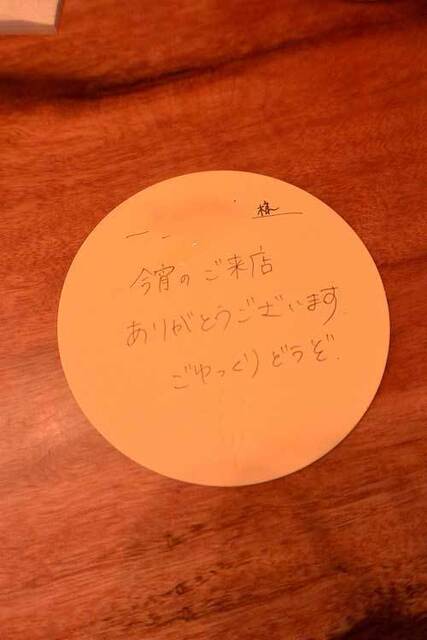 様
今宵のご来店
ありがとうございます
ごゆっくりどうぞ.